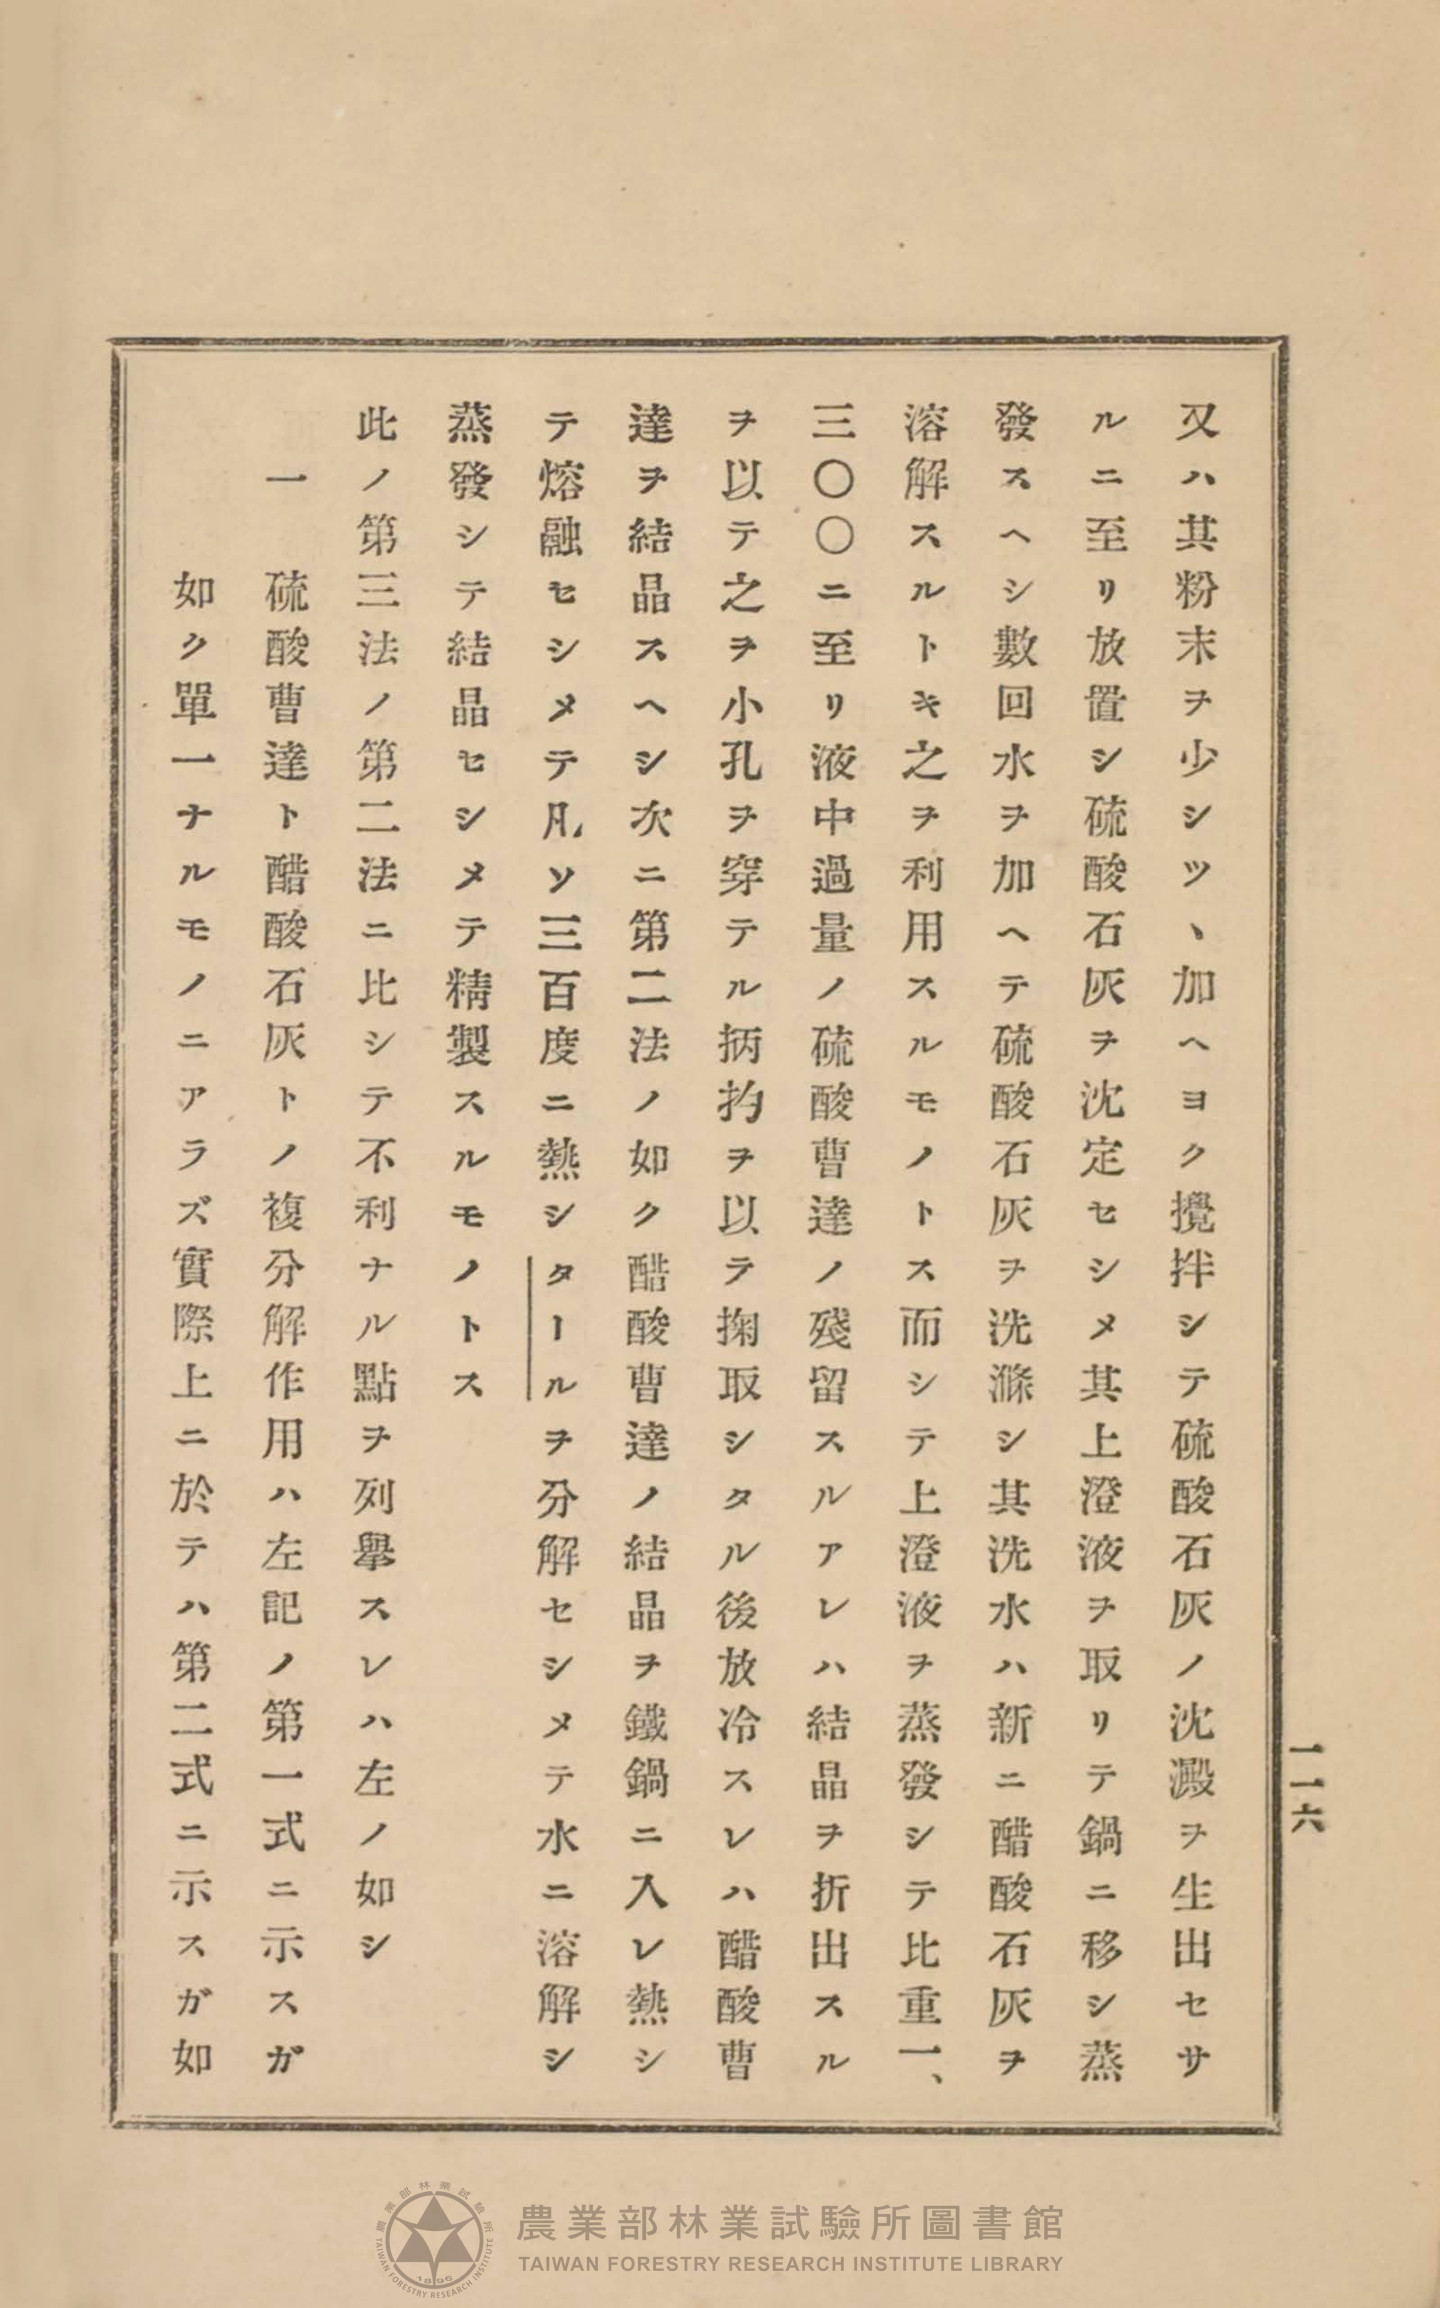 一一六
又ハ其粉末ヲ少シツヽ加ヘヨク攪拌シテ硫酸石灰ノ沈澱ヲ生出セサ
ルニ至リ放置シ硫酸石灰ヲ沈定セシメ其上澄液ヲ取リテ鍋ニ移シ蒸
發スヘシ數回水ヲ加ヘテ硫酸石灰ヲ洗滌シ其洗水ハ新ニ醋酸石灰ヲ
溶解スルトキ之ヲ利用スルモノトス而シテ上澄液ヲ蒸發シテ比重一、
三〇〇ニ至リ液中過量ノ硫酸曹達ノ殘留スルアレハ結晶ヲ折出スル
ヲ以テ之ヲ小孔ヲ穿テル柄杓ヲ以テ掬取シタル後放冷スレハ醋酸曹
達ヲ結晶スヘシ次ニ第二法ノ如ク醋酸曹達ノ結晶ヲ鐵鍋ニ入レ熱シ
テ熔融セシメテ凡ソ三百度ニ熱シタールヲ分解セシメテ水ニ溶解シ
蒸發シテ結晶セシメテ精製スルモノトス
此ノ第三法ノ第二法ニ比シテ不利ナル點ヲ列擧スレハ左ノ如シ
一　硫酸曹達ト醋酸石灰トノ複分解作用ハ左記ノ第一式ニ示スガ
如ク單一ナルモノニアラズ實際上ニ於テハ第二式ニ示スガ如
農業部林業試驗所圖書館
TAIWAN FORESTRY RESEARCH INSTITUTE LIBRARY
農業部林業試驗所
TAIWAN FORESTRY RESEARCH INSTITUTE
1896